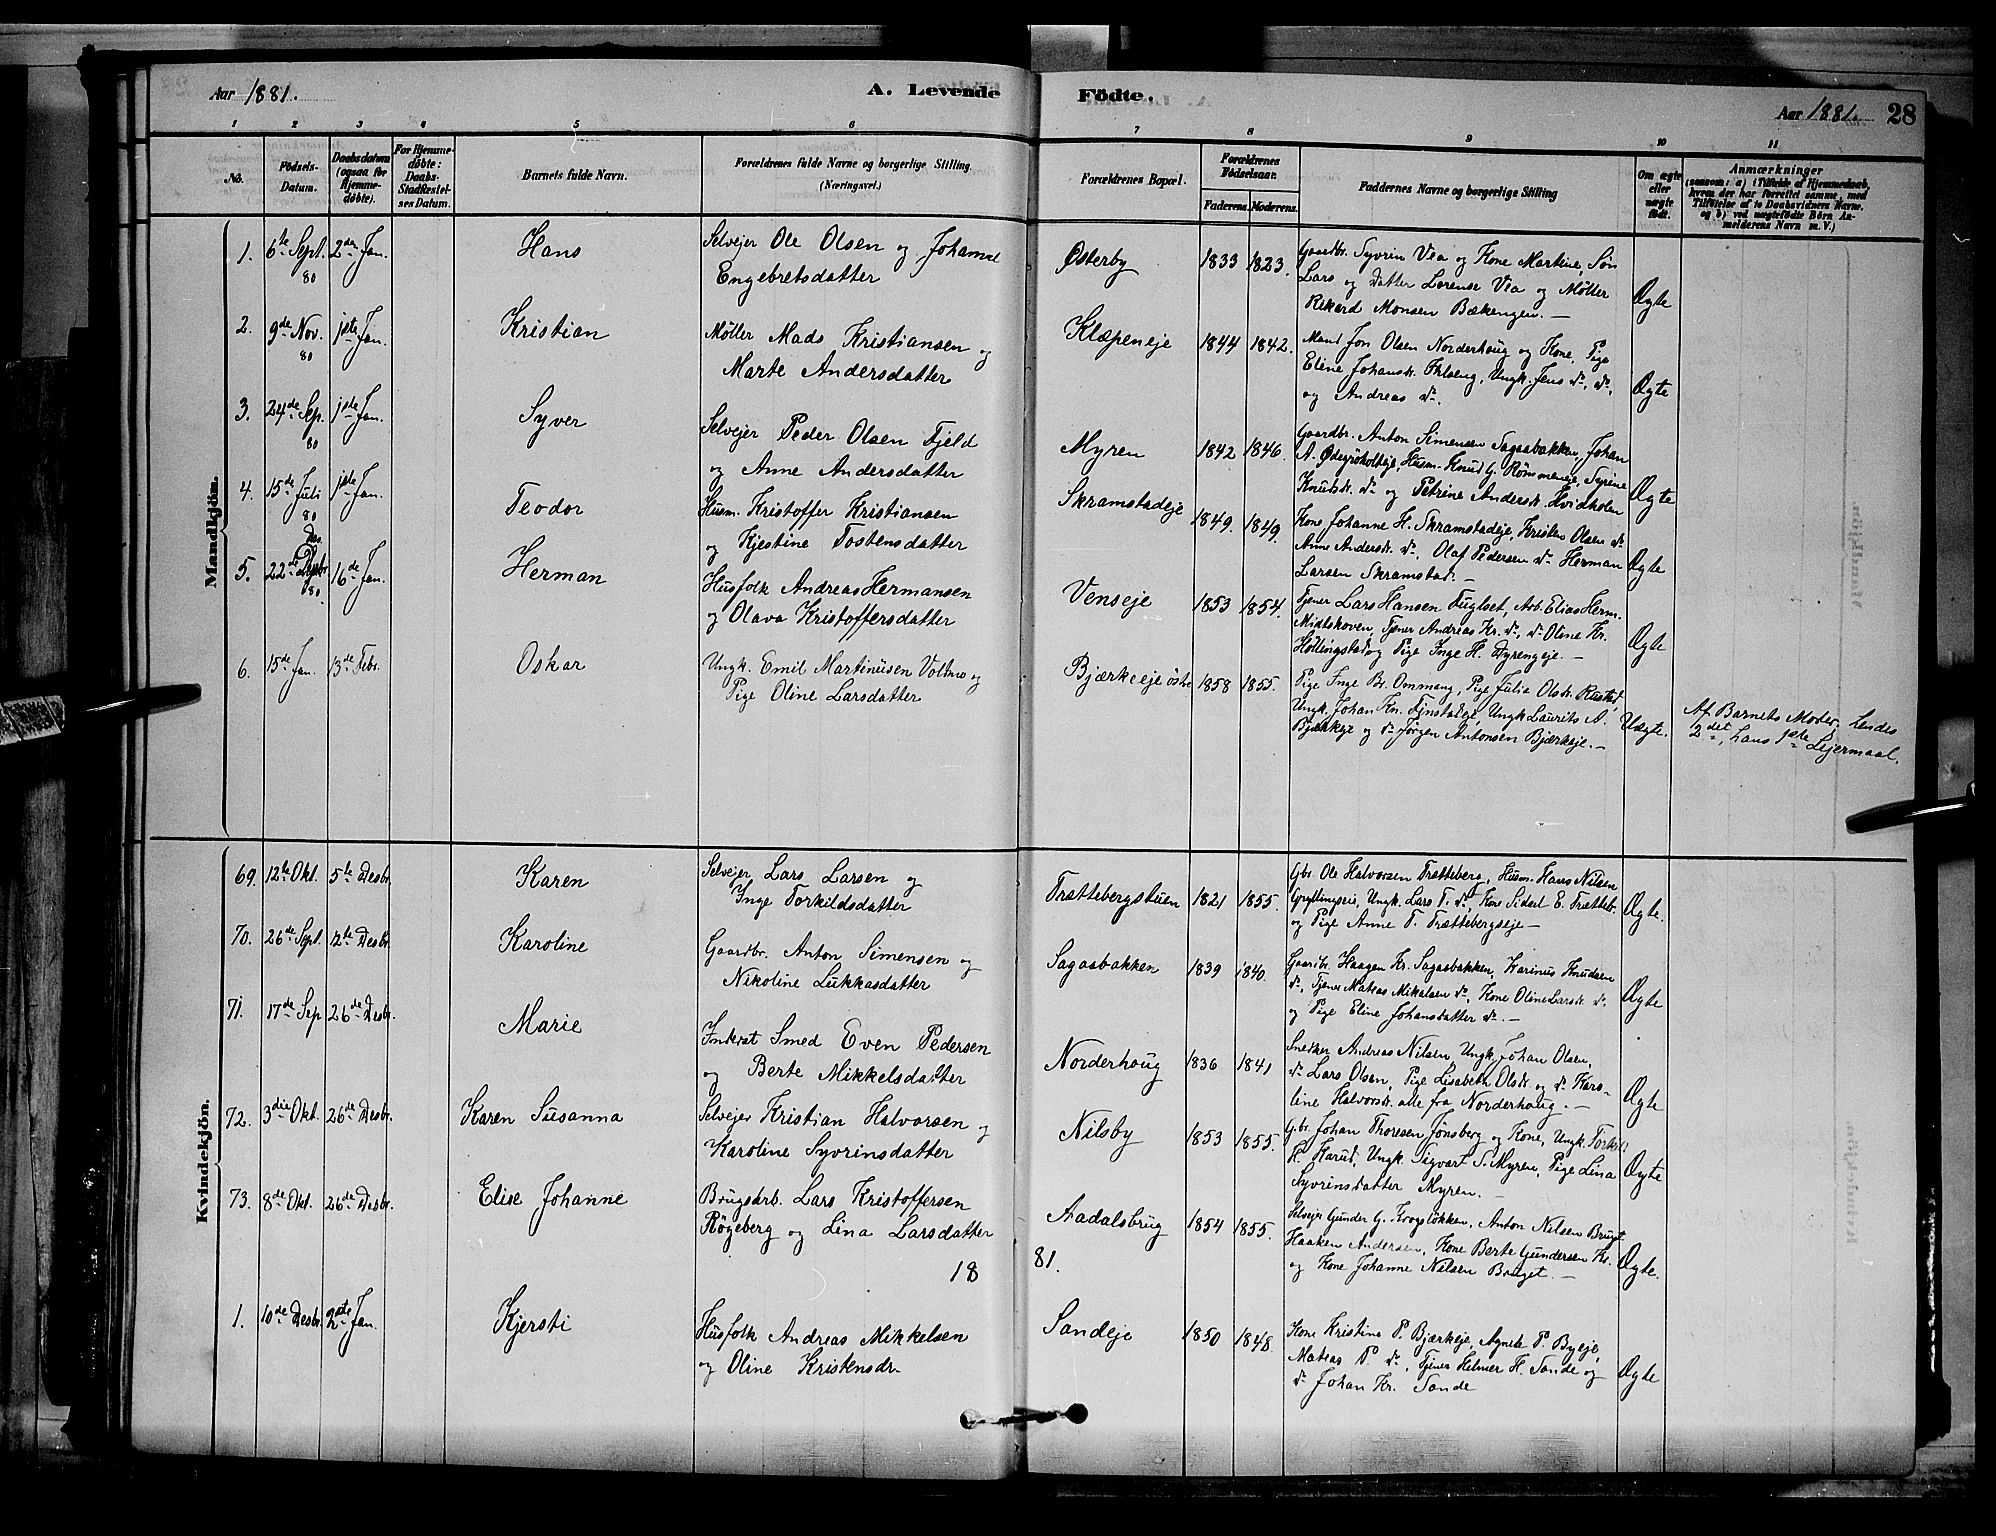 Aar 1881.
A. Levende
Fødte.
Aar 1881. 28
1 2 3 4 5 6 7 8 9 10 11
No.
Fødsels-Datum.
Daabsdatum (ogsaa for Hjemmedøbte).
For Hjemmedøbte: Daabs-Stadfæstelses Datum.
Barnets fulde Navn.
Forældrenes fulde Navne og borgerlige Stilling. (Næringsvei.)
Forældrenes Bopæl.
Forældrenes Fødselsaar.
Faderens. Moderens.
Faddernes Navne og borgerlige Stilling
Om ægte eller uægte født.
Anmærkninger
(saasom: a) i Tilfælde af Hjemmedaab, hvem der har forrettet samme, med Tilføielse af to Daabsvidners Navne, og b) ved uægtefødte Børn Anmelderens Navn m. V.)
Mandkjön.
1. 6te Sept. 80 2den Jan. Hans
Selvejer Ole Olsen og Johanne
Engebretsdatter
Østerby 1833 1823.
Gaardbr. Syvrin Vea og Kone Martine, Søn
Lars og Datter Lorense Vea og Møller
Rikard Monsen Bækengen. —
Ægte
2. 9de Nov. 80 1ste Jan. Kristian
Møller Mads Kristiansen og
Marte Andersdatter
Klæpeneje 1844 1842.
Mand Jon Olsen Norderhoug og Kone, Pige
Eline Johansdr. Ihlseng, Ungk. Jens do, do,
og Andreas do.
Ægte
3. 24de Sep. 80 1ste Jan. Syver
Selvejer Peder Olsen Fjeld
og Anne Andersdatter
Myren 1842 1846.
Gaardbr. Anton Simensen Sagaabakken, Johan
A. Ødegr, Husm. Knud G. Rømmeneje, Syrine
Knutsdr. do og Petrine Andersdr. Hvidholen
Ægte
4. 15de Juli 80 1ste Jan. Teodor
Husm. Kristoffer Kristiansen
og Kjestine Tostensdatter
Skramstadeje 1849. 1849.
Kone Johanne H. Skramstadeje, Kristen Olsen do
Anne Andersdr. do, Olaf Pedersen do Herman
Larsen Skramstad. —
Ægte
5. 22de Des. 80. 16de Jan. Herman
Husfolk Andreas Hermansen
og Olava Kristoffersdatter
Venseje 1853 1854.
Tjener Lars Hansen Fuglset, Arb. Elias Herm.
Midtskoven, Tjener Andreas Kr. do, do Oline Kr.
Høllingstad og Pige Inge H. Dyrengeje. —
Ægte
6. 15de Jan. 13de Febr. Oskar
Ungk. Emil Martinusen Voldmo og
Pige Oline Larsdatter
Bjærkeeje østre 1858 1855.
Pige Inge Br. Ommang, Pige Julie Olsdr. Rustad,
Ungk. Johan Kn. Finstadeje, Ungk Laurits A.
Bjærkeje og do Jørgen Antonsen Bjærkeje. —
Uægte.
Af Barnets Moder, hendes
2det, hans 1ste Lejermaal.
Kvindekjön.
69. 12te Okt. 5te Desbr. Karen
Selvejer Lars Larsen og
Inge Torkildsdatter
Trættebergstuen 1821 1855.
Gbr. Ole Halvorsen Trætteberg, Husm. Hans Nilsen
Gryllingseie, Ungk. Lars T. do, Kone Sidsel E. Trætteb.
og Pige Anne T. Trættebergseje —
Ægte.
70. 26de Sept. 12te Desbr. Karoline
Gaardbr. Anton Simensen og
Nikoline Lukkasdatter
Sagaabakken 1839 1840.
Gaardbr. Haagen Kr. Sagaabakken, Karinus Knudsen
do, Tjener Mateas Mikalsen do, Kone Oline Larsdr. do
og Pige Eline Johansdatter do. —
Ægte
71. 17de Sep 26de Desbr. Marie
Inderst Smed Even Pedersen
og Berte Mikkelsdatter
Norderhoug 1836 1841
Snedker Andreas Nilsen, Ungk. Johan Olsen,
do Lars Olsen, Pige Lisabeth Olsdr. og do Karo-
line Halvorsdr. alle fra Norderhoug. —
Ægte
72. 3die Okt. 26de Desbr. Karen Susanna
Selvejer Kristian Halvorsen og
Karoline Syvrinsdatter
Nilsby 1853 1855.
Gbr. Johan Thoresen Jønsberg og Kone, Ungk. Torkil
H. Harud, Ungk. Sigvart S. Myren, Pige Lina
Syvrinsdatter Myren. —
Ægte
73. 8de Okt. 26de Desbr. Elise Johanne
Brugsarb. Lars Kristoffersen
Røgeberg og Lina Larsdatter
Aadalsbrug 1854 1855.
Selvejer Gunder G. Krogsløkken, Anton Nilsen Bruget
Haaken Andersen, Kone Berte Gundersen Kr.
og Kone Johanne Nilsen Bruget. —
Ægte.
18 81.
1. 10de Desbr. 2den Jan. Kjersti
Husfolk Andreas Mikkelsen
og Oline Kristensdr.
Sandeje 1850 1848.
Kone Kristine P. Bjærkeje, Agnete P. Byeje,
Mateas P. do, Tjener Helmer H. Sande og
do Johan Kr. Sande
Ægte